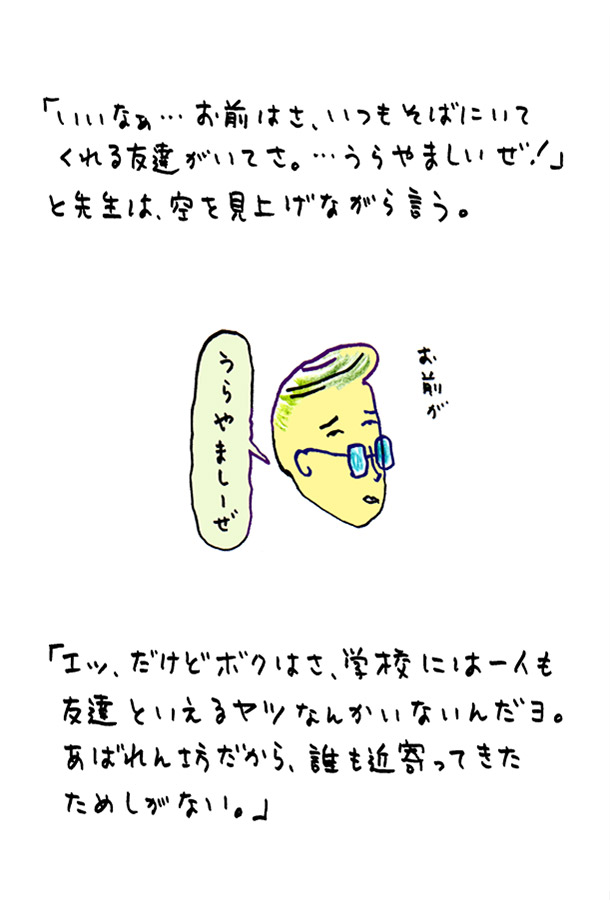 「いいなぁ…お前はさ、いつもそばにいて
くれる友達がいてさ。…うらやましいぜ!」
と先生は、空を見上げながら言う。
お前が
うらやましーぜ
「エッ、だけどボクはさ、学校には一人も
友達といえるヤツなんかいないんだヨ。
あばれん坊だから、誰も近寄ってきた
ためしがない。」